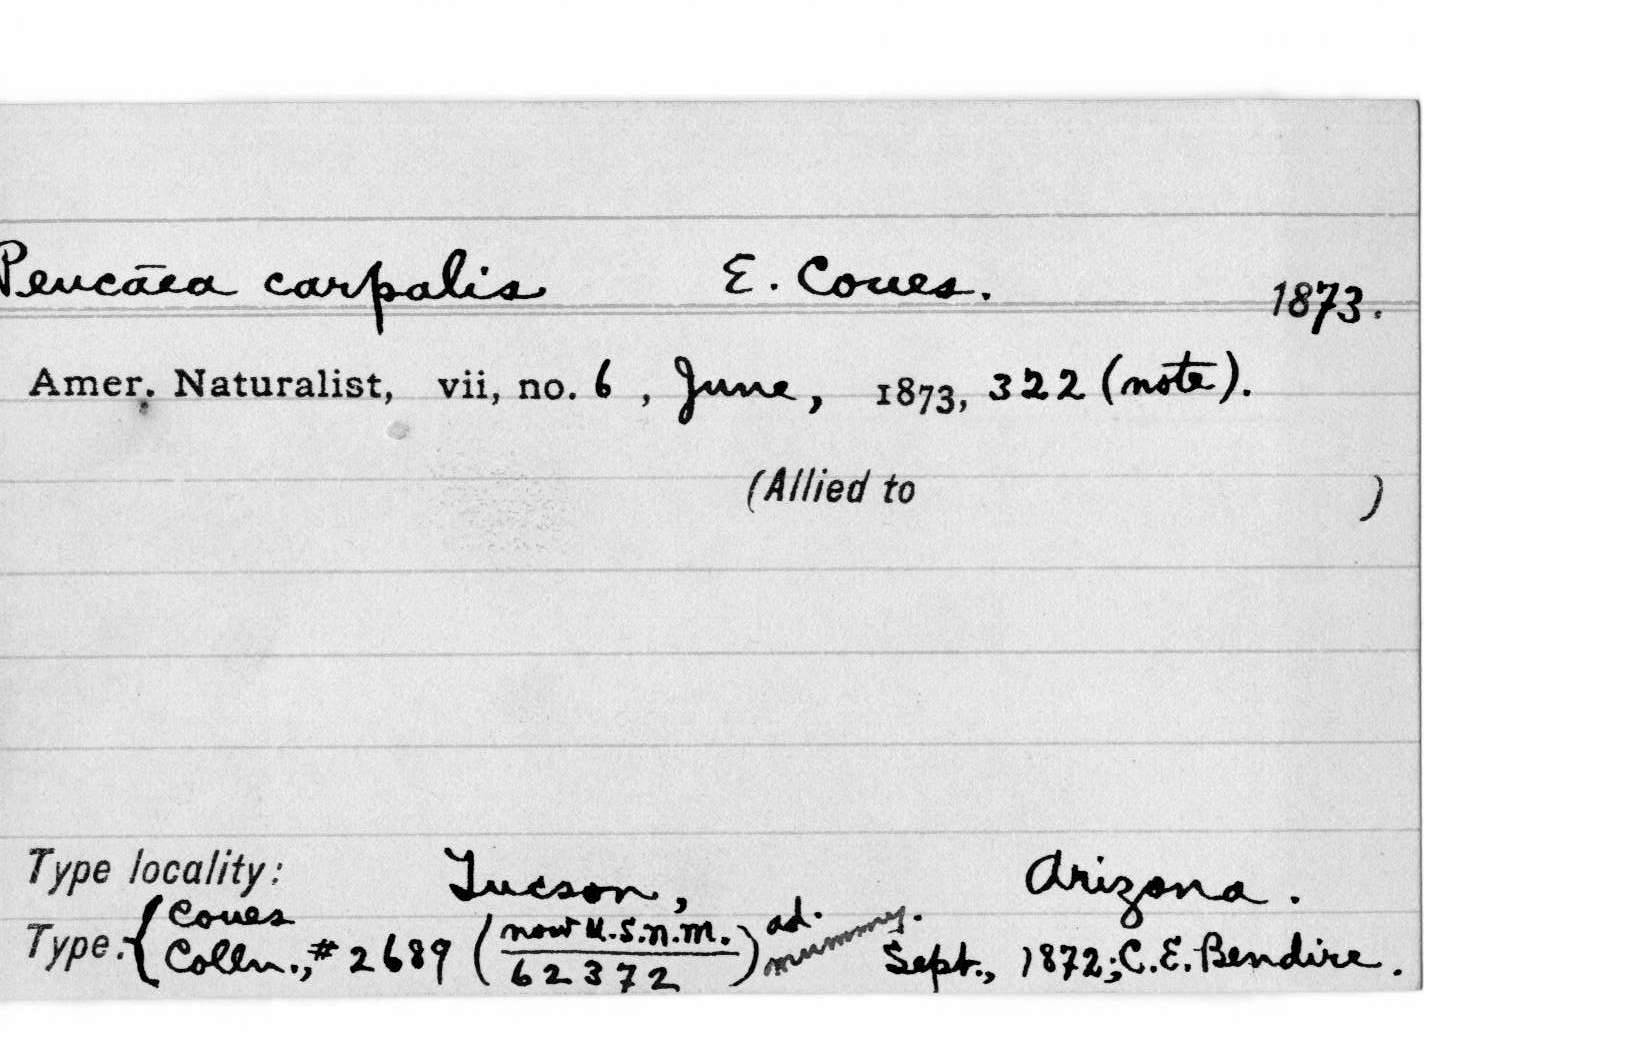 Peucāea carpalis E. Coues. 1873.
Amer. Naturalist, vii, no. 6, June, 1873, 322 (note).
(Allied to )
Type locality: Tucson, Arizona.
Type: { Coues
Colln., # 2689 (now U.S.N.M. 62372) ad. mummy. Sept., 1872; C. E. Bendire.